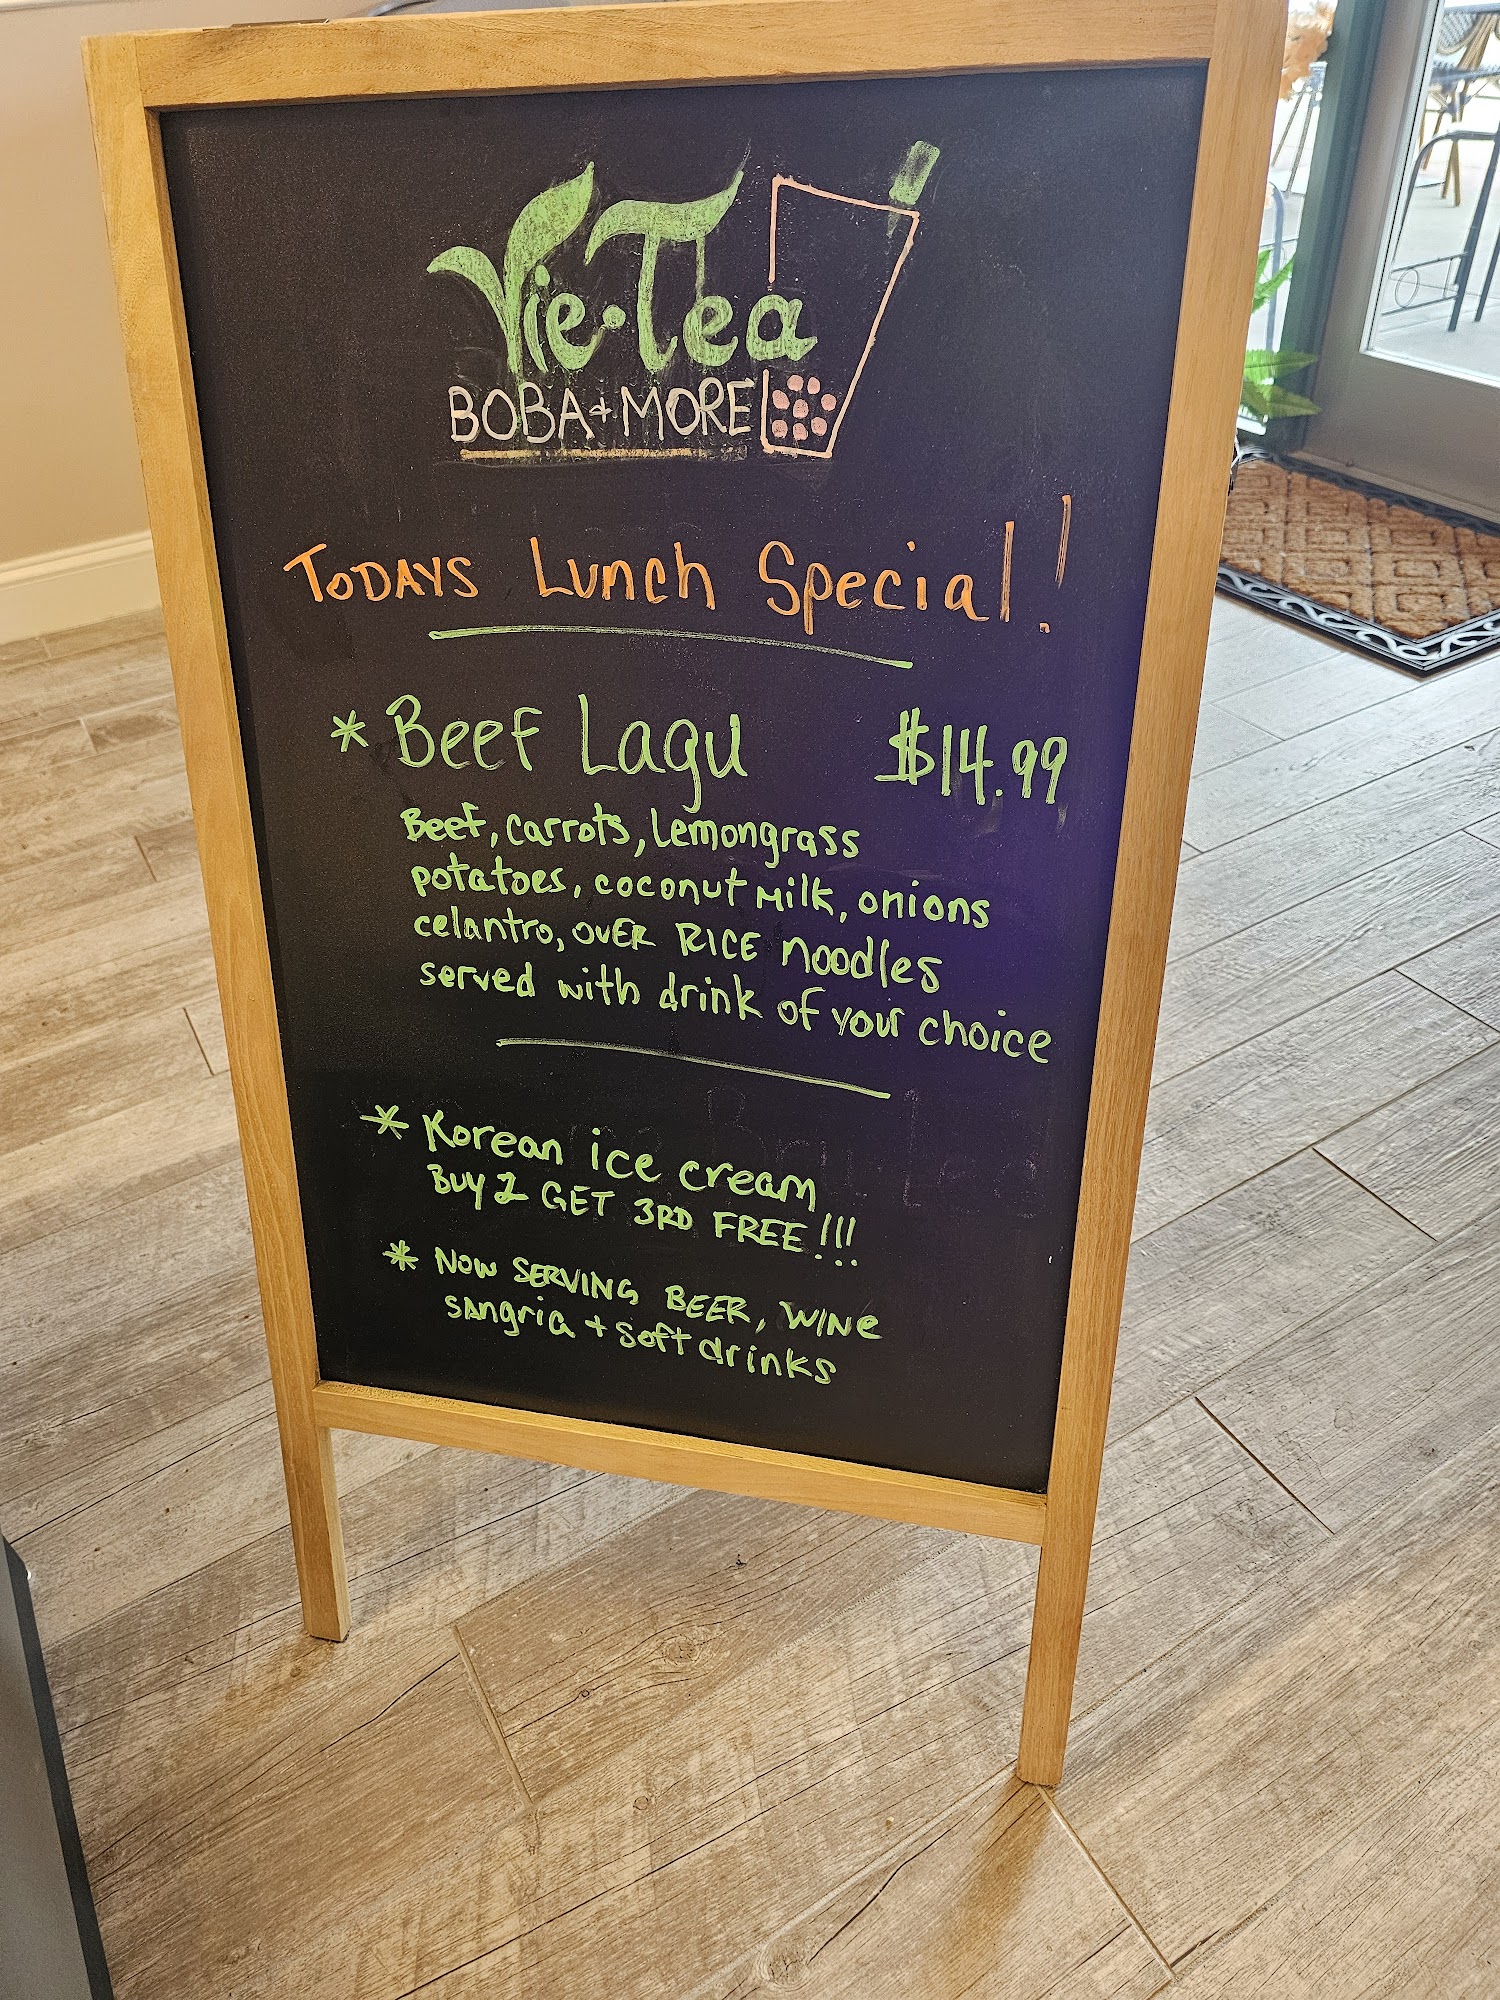 Vie•Tea
BOBA + MORE
TODAYS Lunch Special!
* Beef Lagu $14.99
Beef, carrots, Lemongrass
potatoes, coconut milk, onions
celantro, OVER RICE noodles
served with drink of your choice
* Korean ice cream
Buy 2 GET 3RD FREE!!!
* NOW SERVING BEER, WINE
SANgria + soft drinks